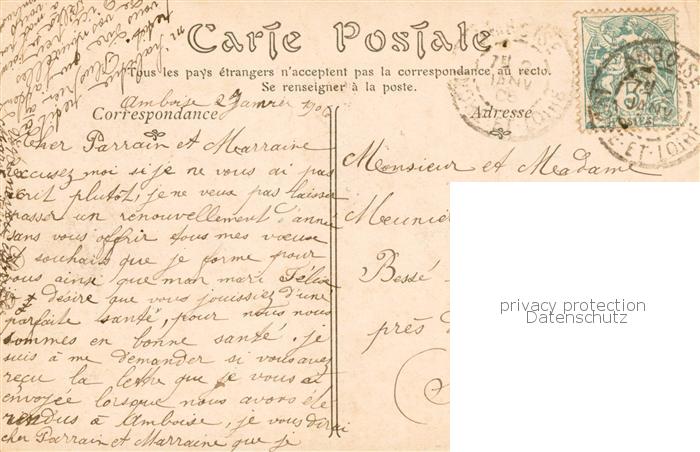 Carte Postale
Tous les pays étrangers n'acceptent pas la correspondance au recto.
Se renseigner à la poste.
Correspondance
Adresse
Amboise 2 Janvier
Cher Parrain et Marraine
excusez moi si je ne vous ai pas
écrit plutôt, je ne veux pas laisser
passer un renouvellement d'année
sans vous offrir tous mes vœux
et souhaits que je forme pour
vous ainsi que mon mari Félix
désire que vous jouissiez d'une
parfaite santé, pour nous nous
sommes en bonne santé, je
suis à me demander si vous avez
reçu la lettre que je vous ai
envoyée lorsque nous avons été
rendus à Amboise, je vous dirai
cher Parrain et Marraine que je
Monsieur et Madame
Meunier
Bessé
près d
AMBOISE
JANV
ET-LOIRE
privacy protection
Datenschutz